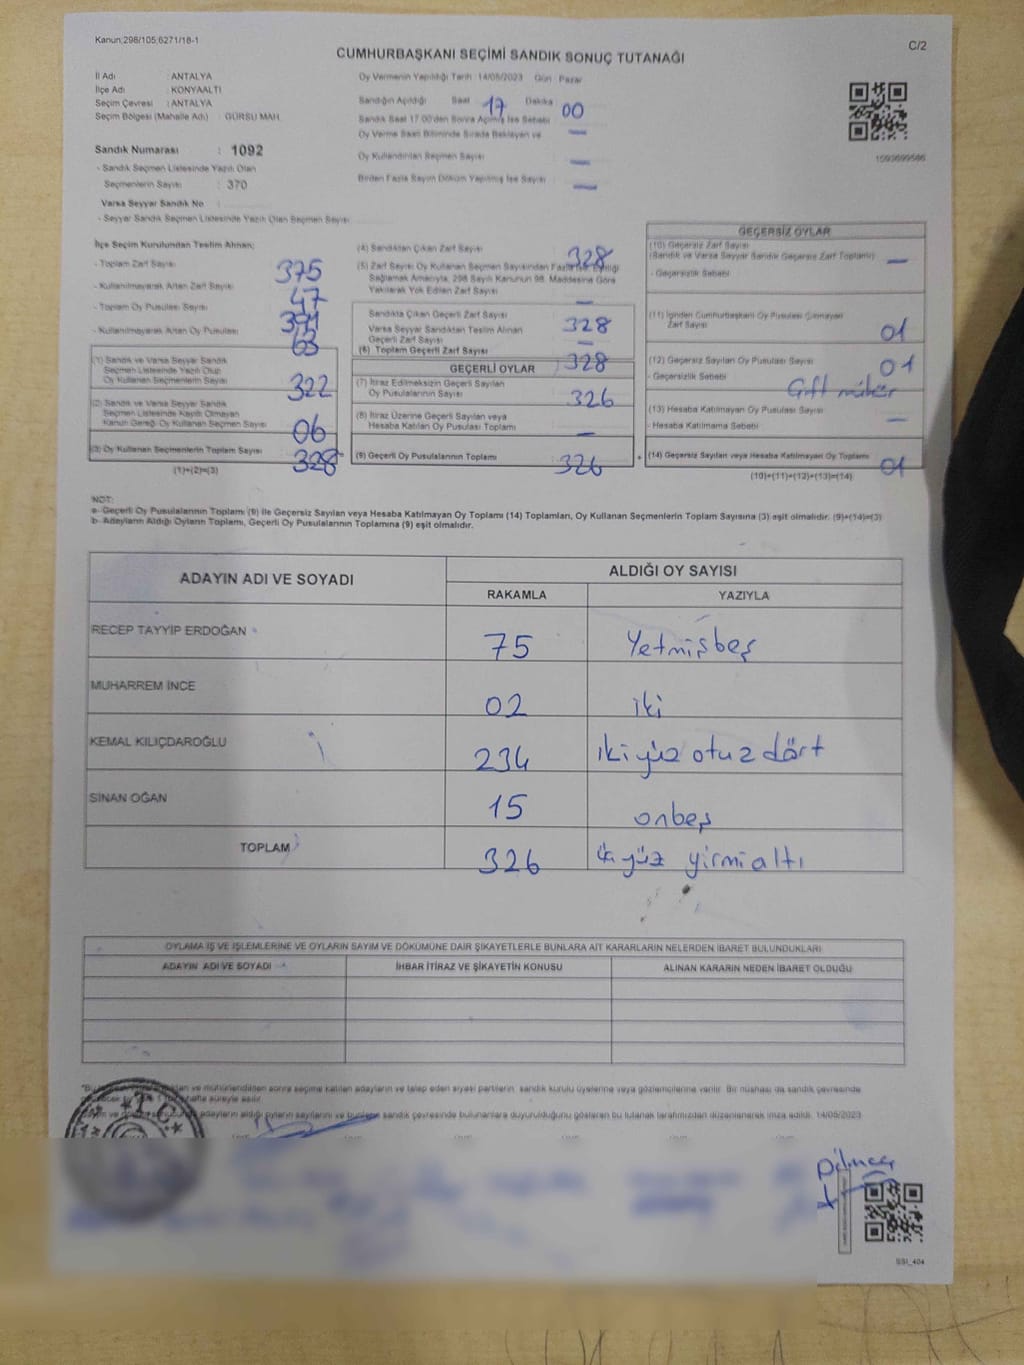 Kanun;298/105;6271/18-1
C/2
CUMHURBAŞKANI SEÇİMİ SANDIK SONUÇ TUTANAĞI
İl Adı : ANTALYA
İlçe Adı : KONYAALTI
Seçim Çevresi : ANTALYA
Seçim Bölgesi (Mahalle Adı) : GÜRSU MAH.
Oy Vermenin Yapıldığı Tarih : 14/05/2023 Gün : Pazar
Sandığın Açıldığı Saat 17 Dakika 00
Sandık Saat 17.00'den Sonra Açılmış İse Sebebi :
Oy Verme Saati Bitiminde Sırada Bekleyen ve
Oy Kullandırılan Seçmen Sayısı : —
Birden Fazla Sayım Döküm Yapılmış İse Sayısı : —
1593699586
Sandık Numarası : 1092
- Sandık Seçmen Listesinde Yazılı Olan
Seçmenlerin Sayısı : 370
Varsa Seyyar Sandık No :
- Seyyar Sandık Seçmen Listesinde Yazılı Olan Seçmen Sayısı :
İlçe Seçim Kurulundan Teslim Alınan;
- Toplam Zarf Sayısı : 375
- Kullanılmayarak Artan Zarf Sayısı : 47
- Toplam Oy Pusulası Sayısı : 391
- Kullanılmayarak Artan Oy Pusulası : 63
(1) Sandık ve Varsa Seyyar Sandık
Seçmen Listesinde Yazılı Olup
Oy Kullanan Seçmenlerin Sayısı : 322
(2) Sandık ve Varsa Seyyar Sandık
Seçmen Listesinde Kayıtlı Olmayan
Kanun Gereği Oy Kullanan Seçmen Sayısı : 06
(3) Oy Kullanan Seçmenlerin Toplam Sayısı : 328
(1)+(2)=(3)
(4) Sandıktan Çıkan Zarf Sayısı : 328
(5) Zarf Sayısı Oy Kullanan Seçmen Sayısından Fazla İse, Eşitliği
Sağlamak Amacıyla, 298 Sayılı Kanunun 98. Maddesine Göre
Yakılarak Yok Edilen Zarf Sayısı : —
Sandıkta Çıkan Geçerli Zarf Sayısı : 328
Varsa Seyyar Sandıktan Teslim Alınan
Geçerli Zarf Sayısı : —
(6) Toplam Geçerli Zarf Sayısı : 328
GEÇERLİ OYLAR
(7) İtiraz Edilmeksizin Geçerli Sayılan
Oy Pusulası Sayısı : 326
(8) İtiraz Üzerine Geçerli Sayılan veya
Hesaba Katılan Oy Pusulası Toplamı : —
(9) Geçerli Oy Pusulalarının Toplamı : 326
GEÇERSİZ OYLAR
(10) Geçersiz Zarf Sayısı
(Sandık ve Varsa Seyyar Sandık Geçersiz Zarf Toplamı) : —
- Geçersizlik Sebebi
(11) İçinden Cumhurbaşkanı Oy Pusulası Çıkmayan
Zarf Sayısı 01
(12) Geçersiz Sayılan Oy Pusulası Sayısı : 01
- Geçersizlik Sebebi : Çift mühür
(13) Hesaba Katılmayan Oy Pusulası Sayısı : —
- Hesaba Katılmama Sebebi :
(14) Geçersiz Sayılan veya Hesaba Katılmayan Oy Toplamı : 01
(10)+(11)+(12)+(13)=(14)
NOT:
a- Geçerli Oy Pusulalarının Toplamı (9) ile Geçersiz Sayılan veya Hesaba Katılmayan Oy Toplamı (14) Toplamları, Oy Kullanan Seçmenlerin Toplam Sayısına (3) eşit olmalıdır. (9)+(14)=(3)
b- Adayların Aldığı Oyların Toplamı, Geçerli Oy Pusulalarının Toplamına (9) eşit olmalıdır.
ADAYIN ADI VE SOYADI
ALDIĞI OY SAYISI
RAKAMLA YAZIYLA
RECEP TAYYİP ERDOĞAN 75 Yetmişbeş
MUHARREM İNCE 02 iki
KEMAL KILIÇDAROĞLU 234 iki yüz otuz dört
SİNAN OĞAN 15 onbeş
TOPLAM 326 üç yüz yirmi altı
OYLAMA İŞ VE İŞLEMLERİNE VE OYLARIN SAYIM VE DÖKÜMÜNE DAİR ŞİKAYETLERLE BUNLARA AİT KARARLARIN NELERDEN İBARET BULUNDUKLARI
ADAYIN ADI VE SOYADI İHBAR İTİRAZ VE ŞİKAYETİN KONUSU ALINAN KARARIN NEDEN İBARET OLDUĞU
ve mühürlendikten sonra seçime katılan adayların ve talep eden siyasi partilerin sandık kurulu üyelerine veya gözlemcilerine verilir. Bir nüshası da sandık çevresinde
hafta süreyle asılır.
adayların aldığı oyların sayılarını ve bunların sandık çevresinde bulunanlara duyurulduğunu gösteren bu tutanak tarafımızdan düzenlenerek imza edildi. 14/05/2023
T.C.
SSI_404